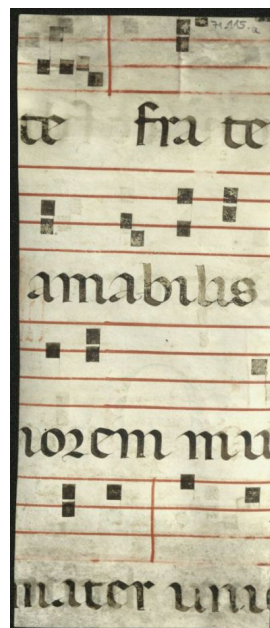 te fra te
amabilis
iorem mu
mater uni